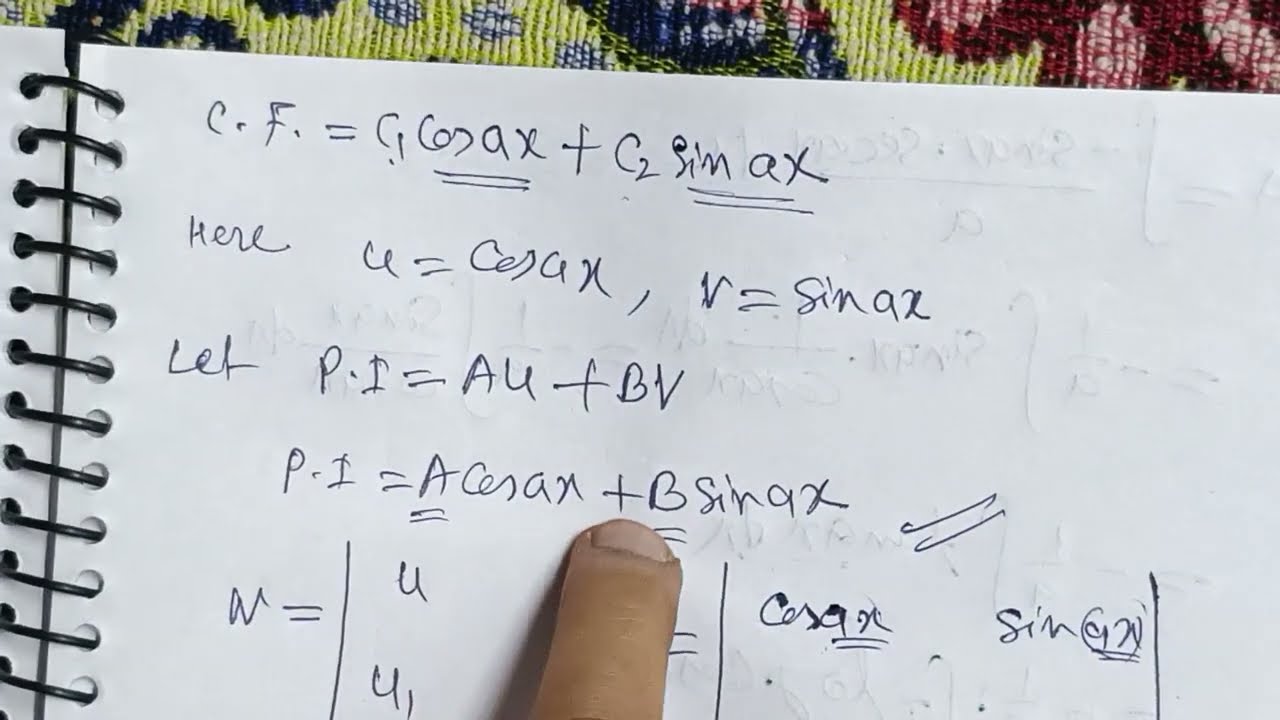 C.F. = C₁ Cosax + C₂ sin ax
Here u = Cosax, v = sinax
Let P.I = Au + BV
P.I = A Cosax + B sinax
W = | u = | Cosax sin(ax) |
u₁